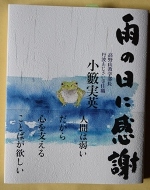 雨の日に感謝
高野山真言宗
小籔実英
人間は弱い
だから
心を支える
ことばが欲しい